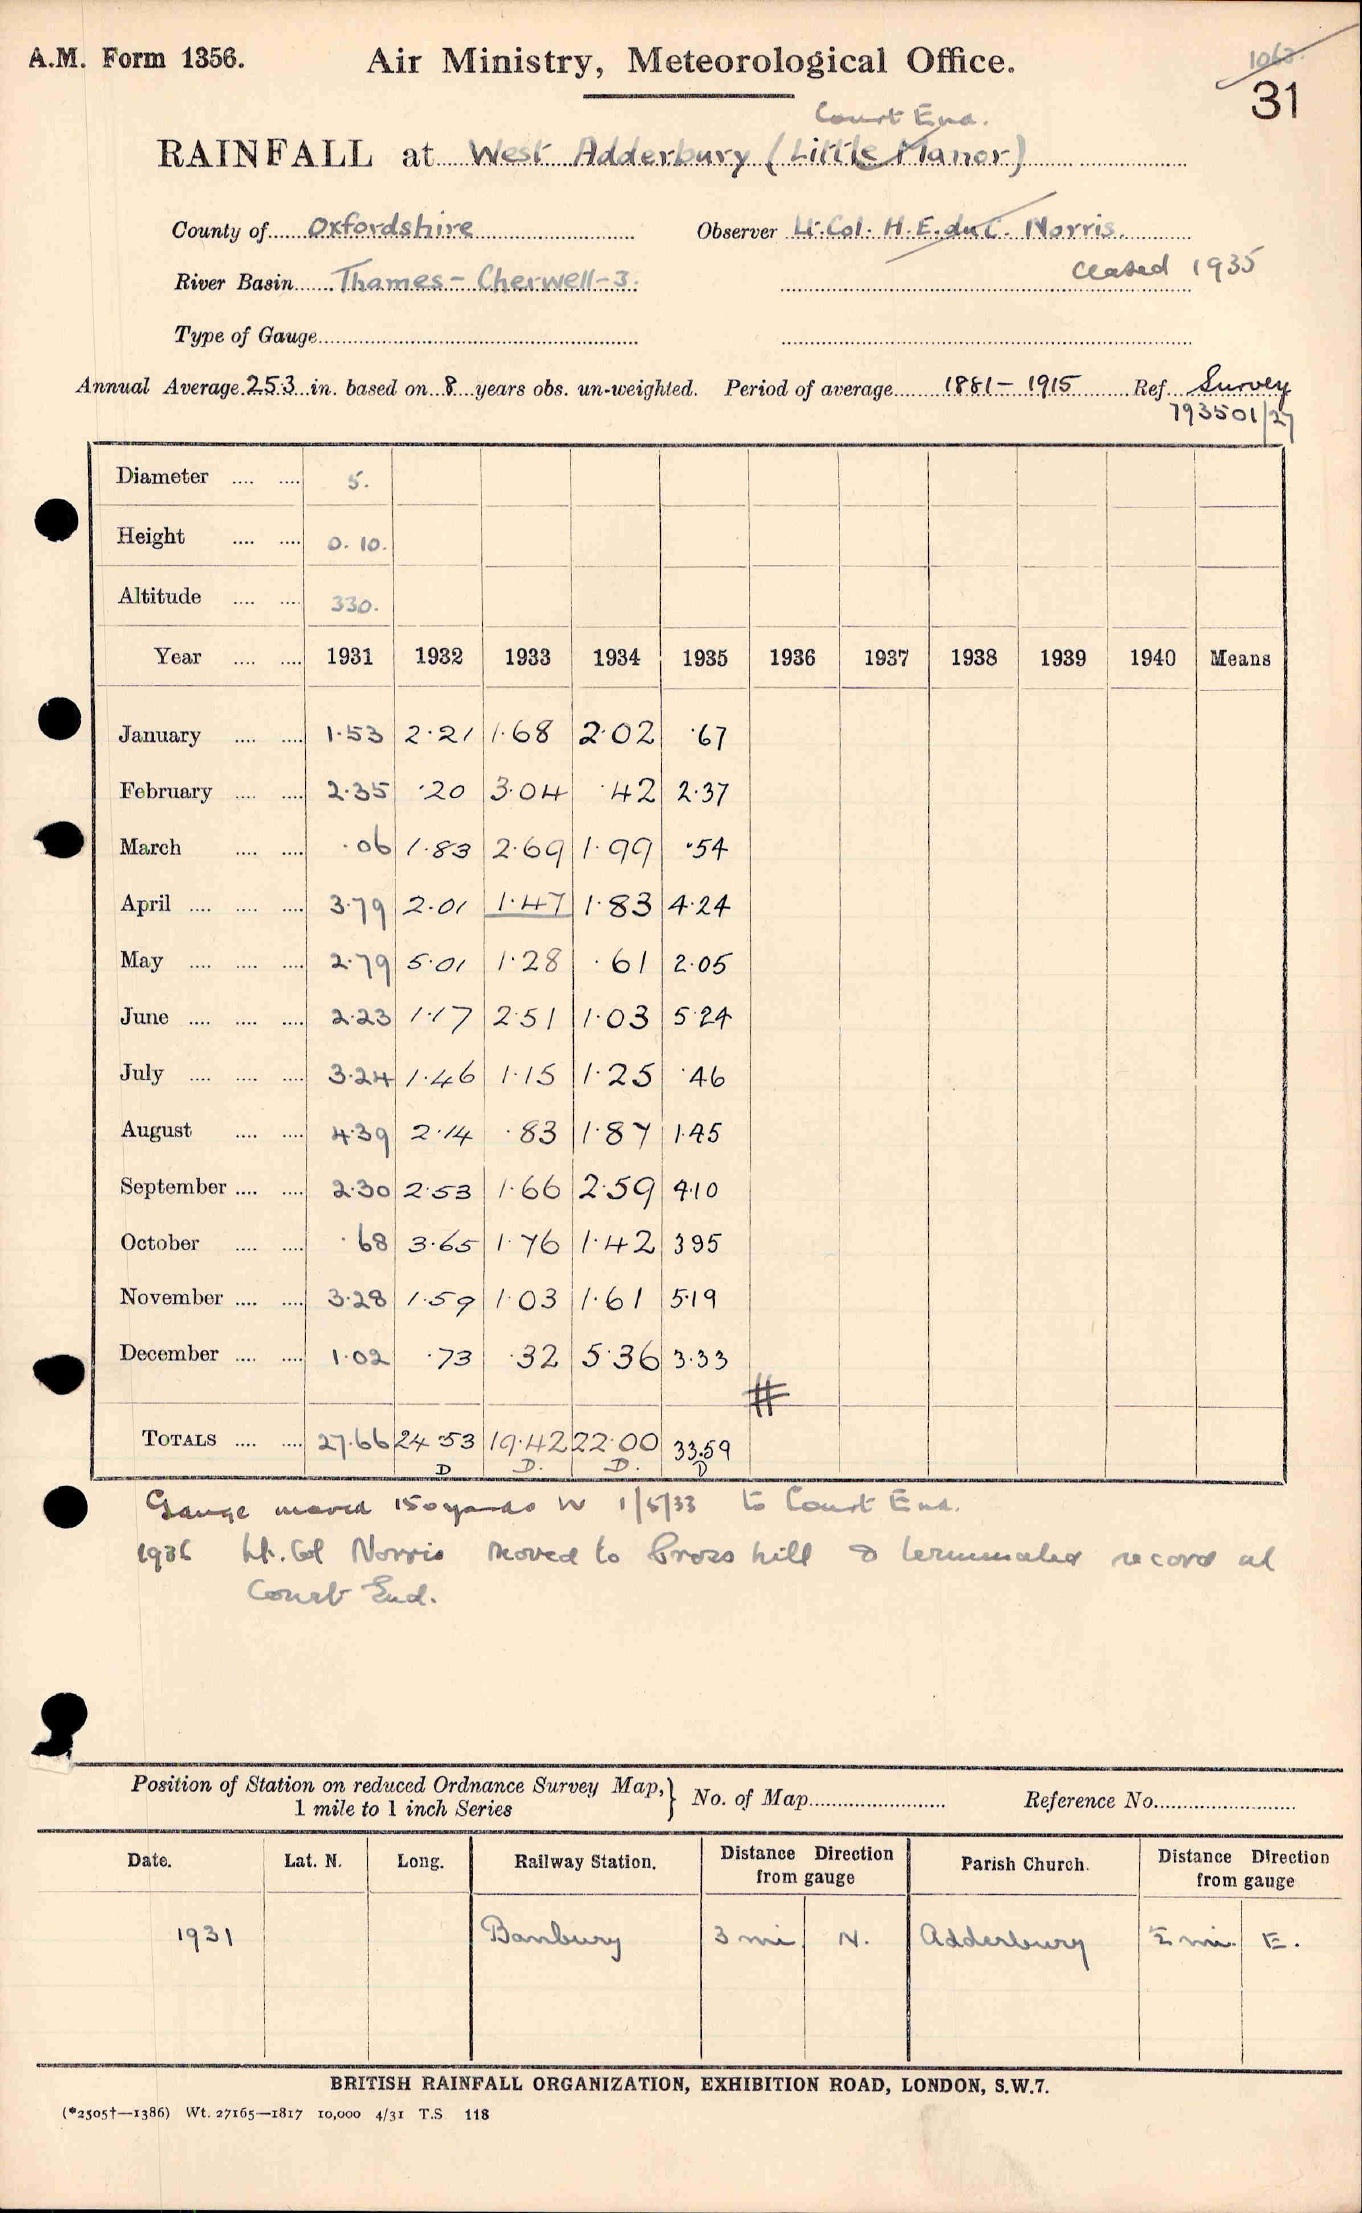 A.M. Form 1356.
Air Ministry, Meteorological Office.
1063.
31
Court End.
RAINFALL at West Adderbury (Little Manor)
County of Oxfordshire Observer Lt. Col. H. E. du C. Norris.
River Basin Thames - Cherwell - 3. ceased 1935
Type of Gauge
Annual Average 25.3 in. based on 8 years obs. un-weighted. Period of average 1881 - 1915 Ref. Survey
793501/27
Diameter .... .... 5.
Height .... .... 0.10.
Altitude .... .... 330.
Year .... .... 1931 1932 1933 1934 1935 1936 1937 1938 1939 1940 Means
January .... .... 1.53 2.21 1.68 2.02 .67
February .... .... 2.35 .20 3.04 .42 2.37
March .... .... .06 1.83 2.69 1.99 .54
April .... .... .... 3.79 2.01 1.47 1.83 4.24
May .... .... .... 2.79 5.01 1.28 .61 2.05
June .... .... .... 2.23 1.17 2.51 1.03 5.24
July .... .... .... 3.24 1.46 1.15 1.25 .46
August .... .... 4.39 2.14 .83 1.87 1.45
September .... .... 2.30 2.53 1.66 2.59 4.10
October .... .... .68 3.65 1.76 1.42 3.95
November .... .... 3.28 1.59 1.03 1.61 5.19
December .... .... 1.02 .73 .32 5.36 3.33
#
TOTALS .... .... 27.66 24.53 19.42 22.00 33.59
D D. D. D
Gauge moved 150 yards W 1/5/33 to Court End.
1936 Lt. Col Norris moved to Cross hill & terminated record at
Court End.
Position of Station on reduced Ordnance Survey Map, } No. of Map Reference No.
1 mile to 1 inch Series
Date. Lat. N. Long. Railway Station. Distance Direction from gauge Parish Church. Distance Direction from gauge
1931 Banbury 3 mi N. Adderbury ½ mi. E.
BRITISH RAINFALL ORGANIZATION, EXHIBITION ROAD, LONDON, S.W.7.
(*2505†—1386) Wt. 27165—1817 10,000 4/31 T.S 118